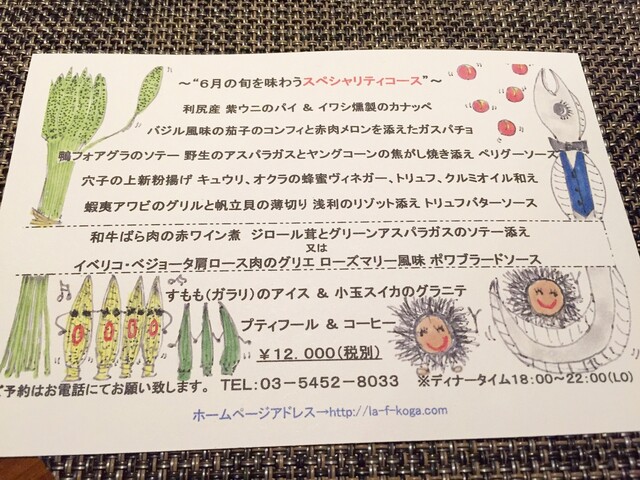 ～“６月の旬を味わうスペシャリティコース”～
利尻産 紫ウニのパイ ＆ イワシ燻製のカナッペ
バジル風味の茄子のコンフィと赤肉メロンを添えたガスパチョ
鴨フォアグラのソテー 野生のアスパラガスとヤングコーンの焦がし焼き添え ペリグーソース
穴子の上新粉揚げ キュウリ、オクラの蜂蜜ヴィネガー、トリュフ、クルミオイル和え
蝦夷アワビのグリルと帆立貝の薄切り 浅利のリゾット添え トリュフバターソース
和牛ばら肉の赤ワイン煮 ジロール茸とグリーンアスパラガスのソテー添え
又は
イベリコ・ベジョータ肩ロース肉のグリエ ローズマリー風味 ポワブラードソース
すもも(ガラリ)のアイス ＆ 小玉スイカのグラニテ
プティフール ＆ コーヒー
￥１２．０００(税別)
ご予約はお電話にてお願い致します。 TEL：０３－５４５２－８０３３ ※ディナータイム１８：００～２２：００(LO)
ホームページアドレス→http://la-f-koga.com